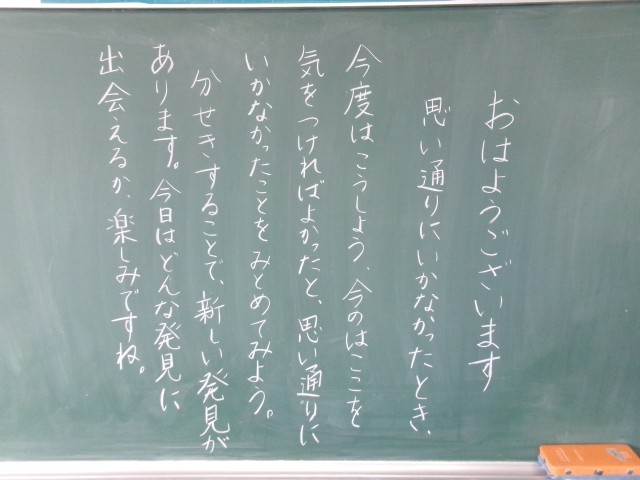 おはようございます
思い通りにいかなかったとき、
今度はこうしよう、今のはここを
気をつければよかったと、思い通りに
いかなかったことをみとめてみよう。
分せきすることで、新しい発見が
あります。今日はどんな発見に
出会えるか、楽しみですね。